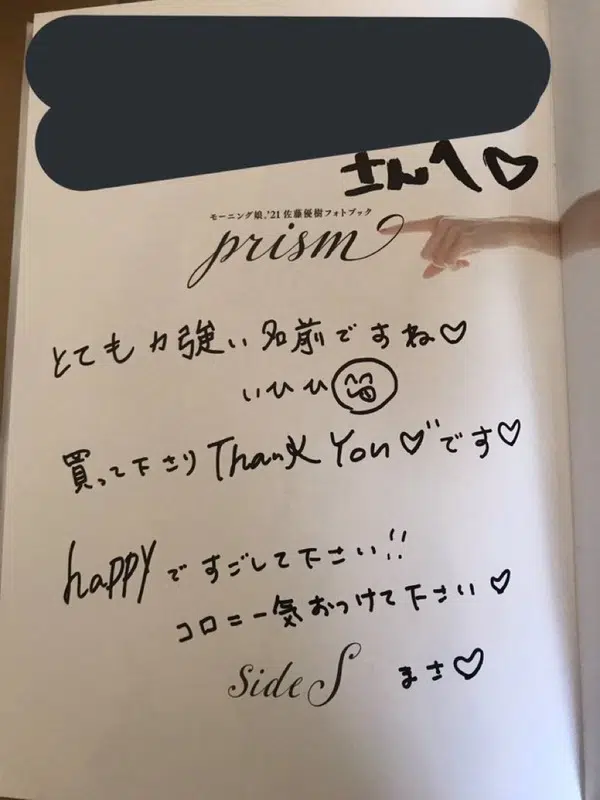 さんへ♡
モーニング娘。'21 佐藤優樹フォトブック
prism
とても力強い名前ですね♡
いひひ
買って下さり Thank You♡"です♡
happyですごして下さい!!
コロニー気おつけて下さい♡
Side S まさ♡